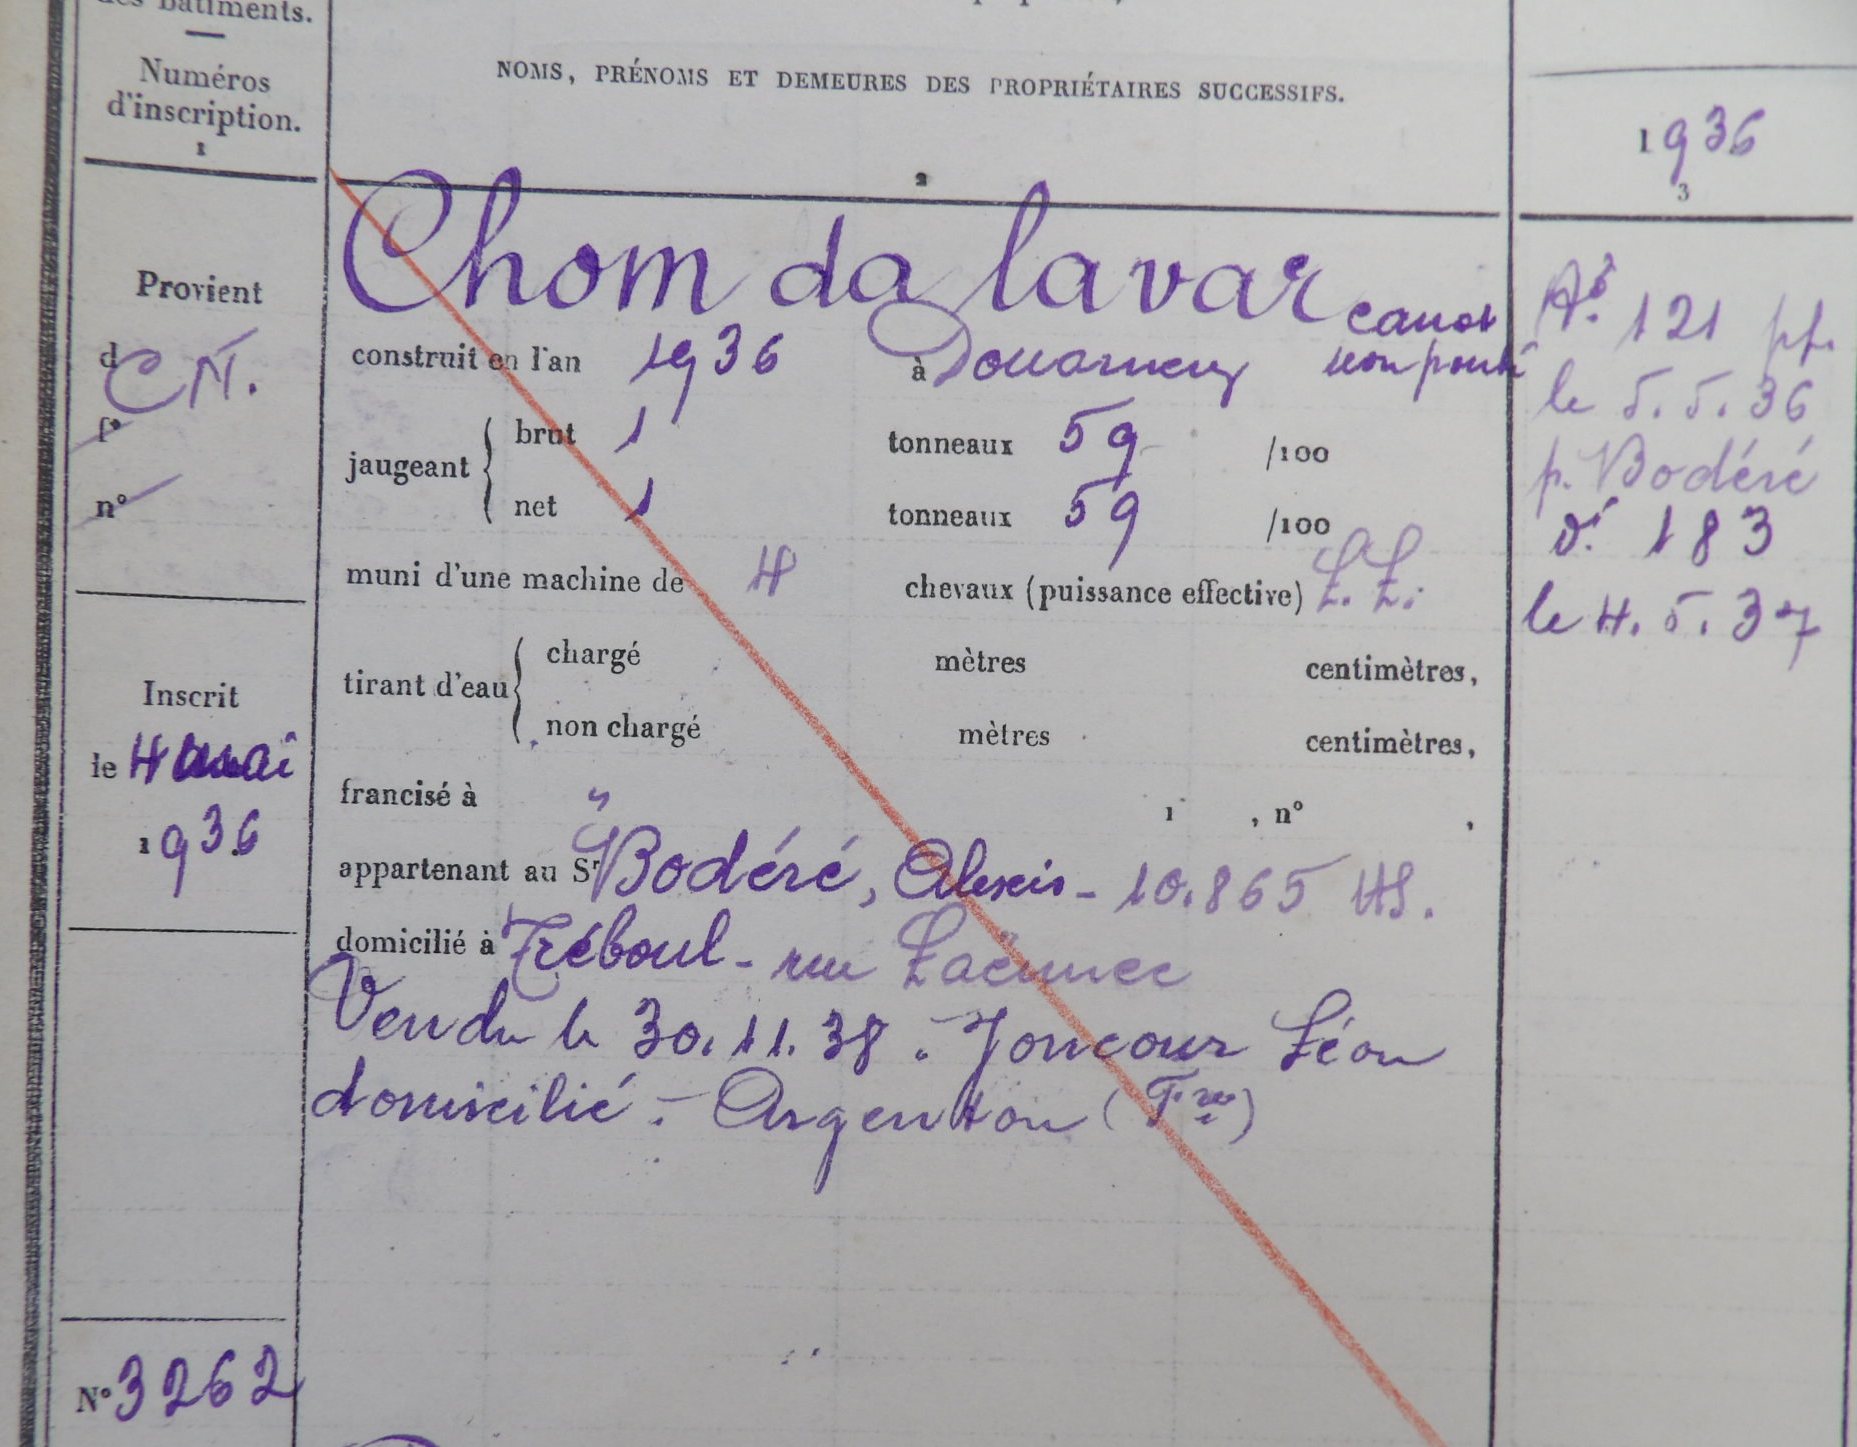 des bâtiments.
Numéros
d'inscription.
1
NOMS, PRÉNOMS ET DEMEURES DES PROPRIÉTAIRES SUCCESSIFS.
2
1936
3
Provient
d C N.
f°
n°
Inscrit
le 4 mai
1936
N° 3262
Chom da lavar canot
construit en l'an 1936 à Douarnenez non ponté
jaugeant { brut 1 tonneaux 59 /100
net 1 tonneaux 59 /100
muni d'une machine de 4 chevaux (puissance effective)
tirant d'eau { chargé mètres centimètres,
non chargé mètres centimètres,
francisé à " 1 , n° ,
appartenant au Sr Bodéré, Alexis - 10.865
domicilié à Tréboul - rue Laënnec
Vendu le 30.11.38 : Joncour Léon
domicilié : Argenton (Fre)
At 121 pf.
le 5.5.36
p. Bodéré
dt 183
le 4.5.37